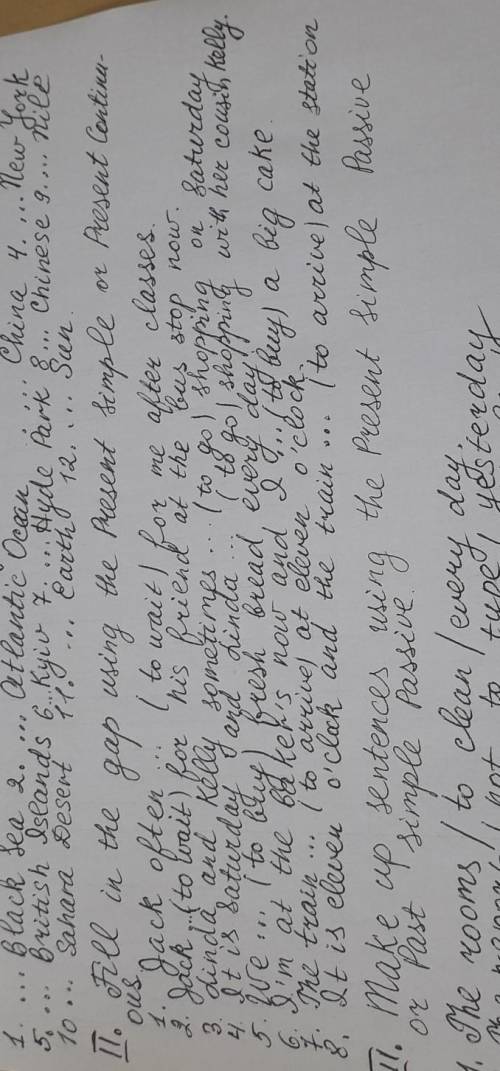 1. ... Black Sea 2. ... Atlantic Ocean 3. ... China 4. ... New York
5. ... British Islands 6. ... Kyiv 7. ... Hyde Park 8. ... Chinese 9. ... Nile
10 ... Sahara Desert 11. ... Earth 12. ... Sun.
II. Fill in the gap using the Present Simple or Present Continu-
ous
1. Jack often ... (to wait) for me after classes.
2. Jack ... (to wait) for his friend at the bus stop now.
3. Linda and Kelly sometimes ... (to go) shopping on Saturday
4. It is Saturday and Linda ... (to go) shopping with her cousin, Kelly.
5. We ... (to buy) fresh bread every day.
6. I'm at the baker's now and I ... (to buy) a big cake.
7. The train ... (to arrive) at eleven o'clock.
8. It is eleven o'clock and the train ... (to arrive) at the station
III. Make up sentences using the Present Simple Passive
or Past Simple Passive.
1. The rooms / to clean / every day.
/ not to type / yesterday